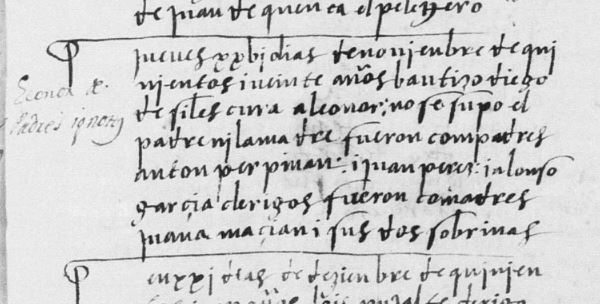 de juan de quenca el pelegero
jueves xxbj dias de novienbre de qui
nientos i veinte años bautizo diego
de siles cura a leonor: no se supo el
padre ni la madre fueron conpadres
anton perpinan: i juan peres: i alonso
garcia clerigos fueron comadres
juana macian i sus dos sobrinas
Leonor de
Padres ignotos
en xxj dias de dezienbre de quinien